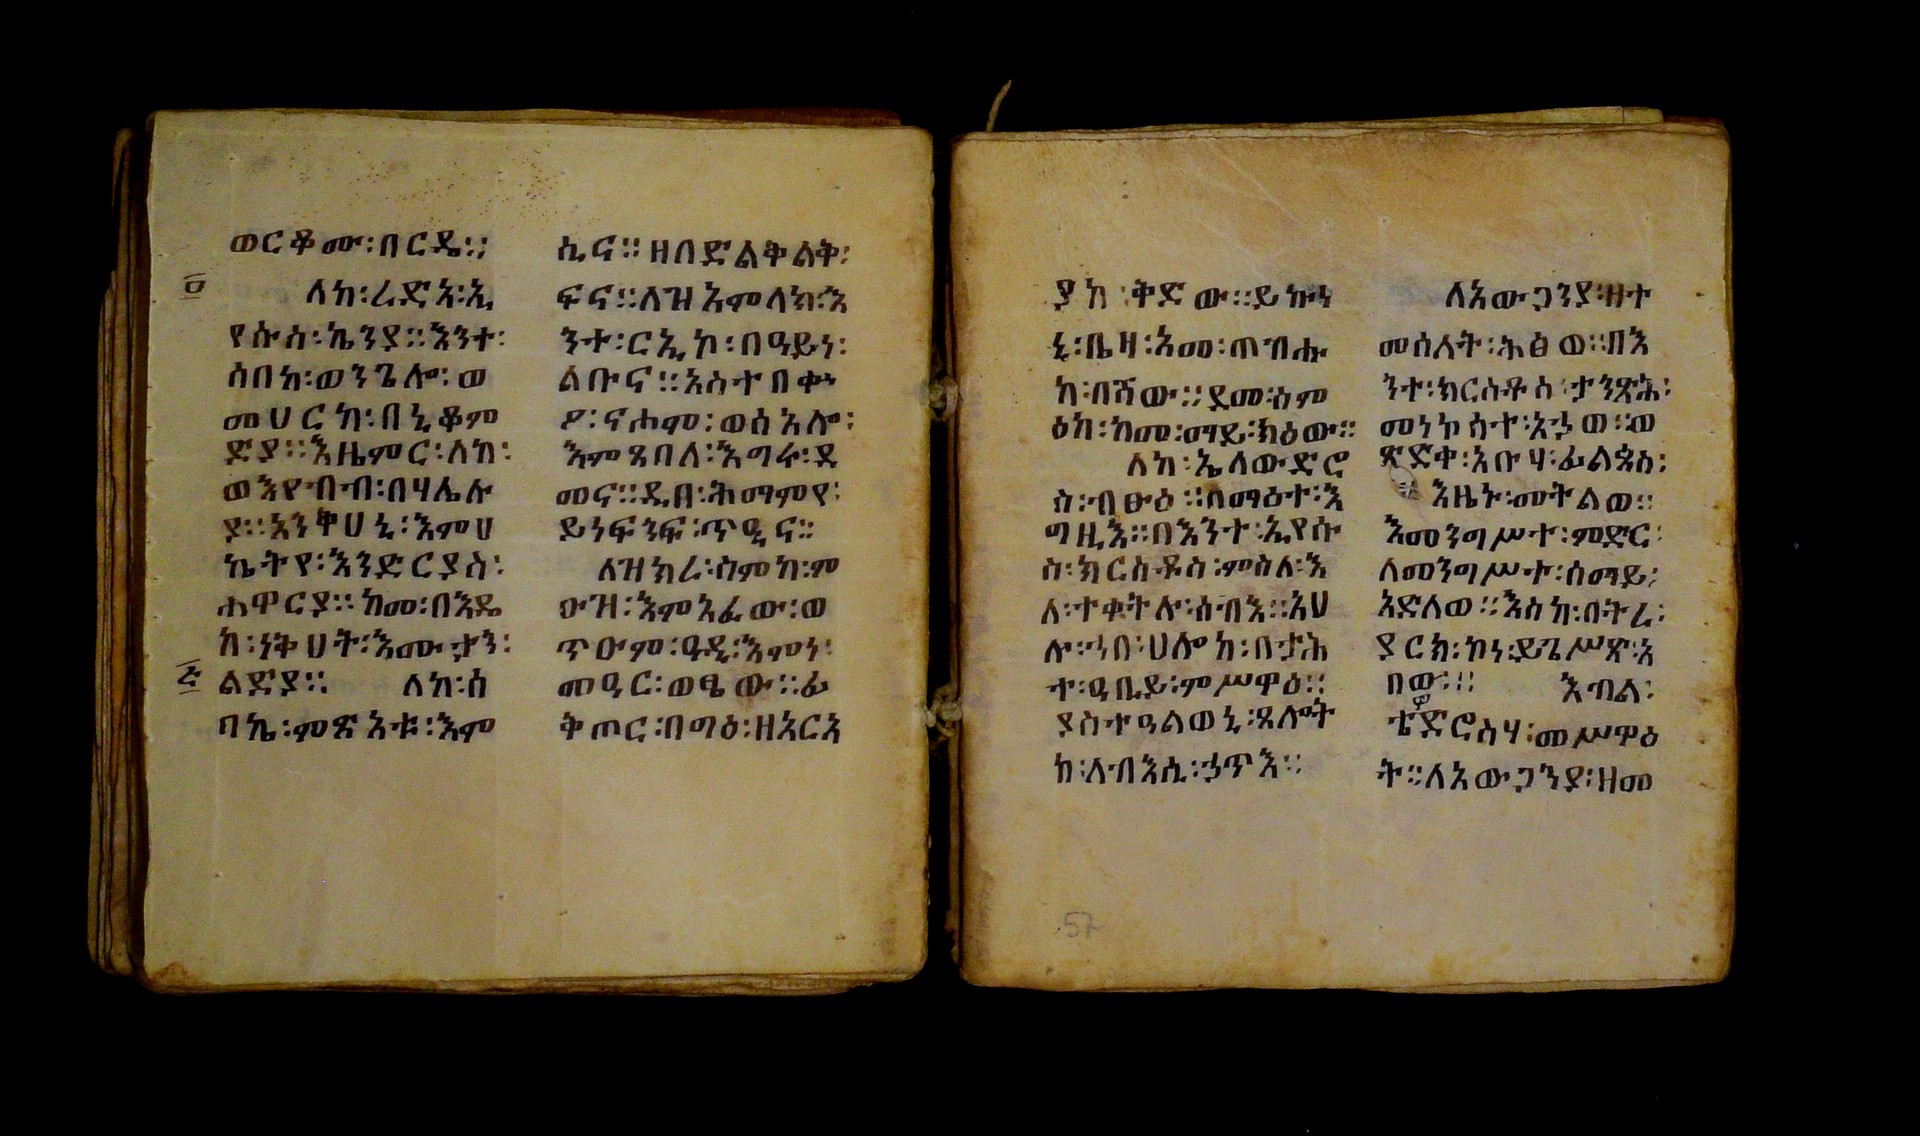 ፬
፭
ወርቆሙ፡በርዴ፡፡
ለከ፡ረድአ፡ኢ
የሱስ፡ኬንያ፡፡እንተ፡
ሰበከ፡ወንጌሎ፡ወ
መሀርከ፡በኒቆም
ድያ፡፡እዜምር፡ለከ፡
ወእየብብ፡በሃሌሉ
ያ፡፡አንቅሀኒ፡እምሀ
ኬትየ፡እንድርያስ፡
ሐዋርያ፡፡ከመ፡በእዴ
ከ፡ነቅሀት፡እሙታን፡
ልድያ፡፡ ለከ፡ሰ
ባኬ፡ምጽአቱ፡እም
ሲና፡፡ዘበድልቅልቅ፡
ፍና፡፡ለዝአምላክ፡እ
ንተ፡ርኢኮ፡በዓይነ፡
ልቡና፡፡አስተበቀኑ
ዖ፡ናሐሙ፡ወሰአሎ፡
እምጸበለ፡እግሩ፡ደ
መና፡፡ዲበ፡ሕማምየ፡
ይነፍንፍ፡ጥዒና፡፡
ለዝክረ፡ስምከ፡ም
ዑዝ፡እምአፈው፡ወ
ጥዑም፡ዓዲ፡እምነ፡
መዓር፡ወፄው፡፡ፊ
ቅጦር፡በግዕ፡ዘአርአ
ያከ፡ቅድው፡፡ይኩነ
ኒ፡ቤዛ፡አመ፡ጠብሑ
ከ፡በሻው፡፡ደመ፡ስም
ዕከ፡ከመ፡ማይ፡ክዕው፡፡
ለከ፡ኤለውድሮ
ስ፡ብፁዕ፡፡ሰማዕተ፡እ
ግዚእ፡፡በእንተ፡ኢየሱ
ስ፡ክርስቶስ፡ምስለ፡እ
ለ፡ተቀትሉ፡ሰብእ፡፡አሀ
ሉ፡ኀበ፡ሀሎከ፡በታሕ
ተ፡ዓቢይ፡ምሥዋዕ፡፡
ያስተዓልወኒ፡ጸሎት
ከ፡ለብእሲ፡ኃጥእ፡፡
ለአውጋንያ፡ዘተ
መሰለት፡ሕፅወ፡፡በእ
ንተ፡ክርስቶስ፡ታንጽሕ፡
መነኮሰተ፡አኃወ፡፡ወ
ጽድቀ፡አቡሃ፡ፊልጶስ፡
እዜኑ፡መትልወ፡፡
እመንግሥተ፡ምድር፡
ለመንግሥተ፡ሰማይ፡
አድለወ፡፡እስከ፡በትረ፡
ያርክ፡ኮነ፡ይጌሥጽ፡አ
በው፡፡፡ እብል፡
ቴድሮስሃ፡መሥዋዕ
ት፡፡ለአውጋንያ፡ዘመ
57